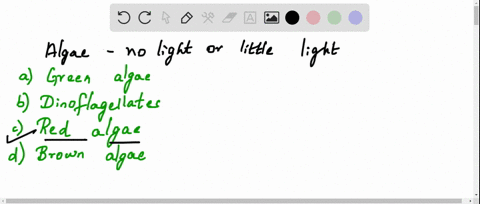 Algae - no light or little light
a) Green algae
b) Dinoflagellates
c) Red algae
d) Brown algae